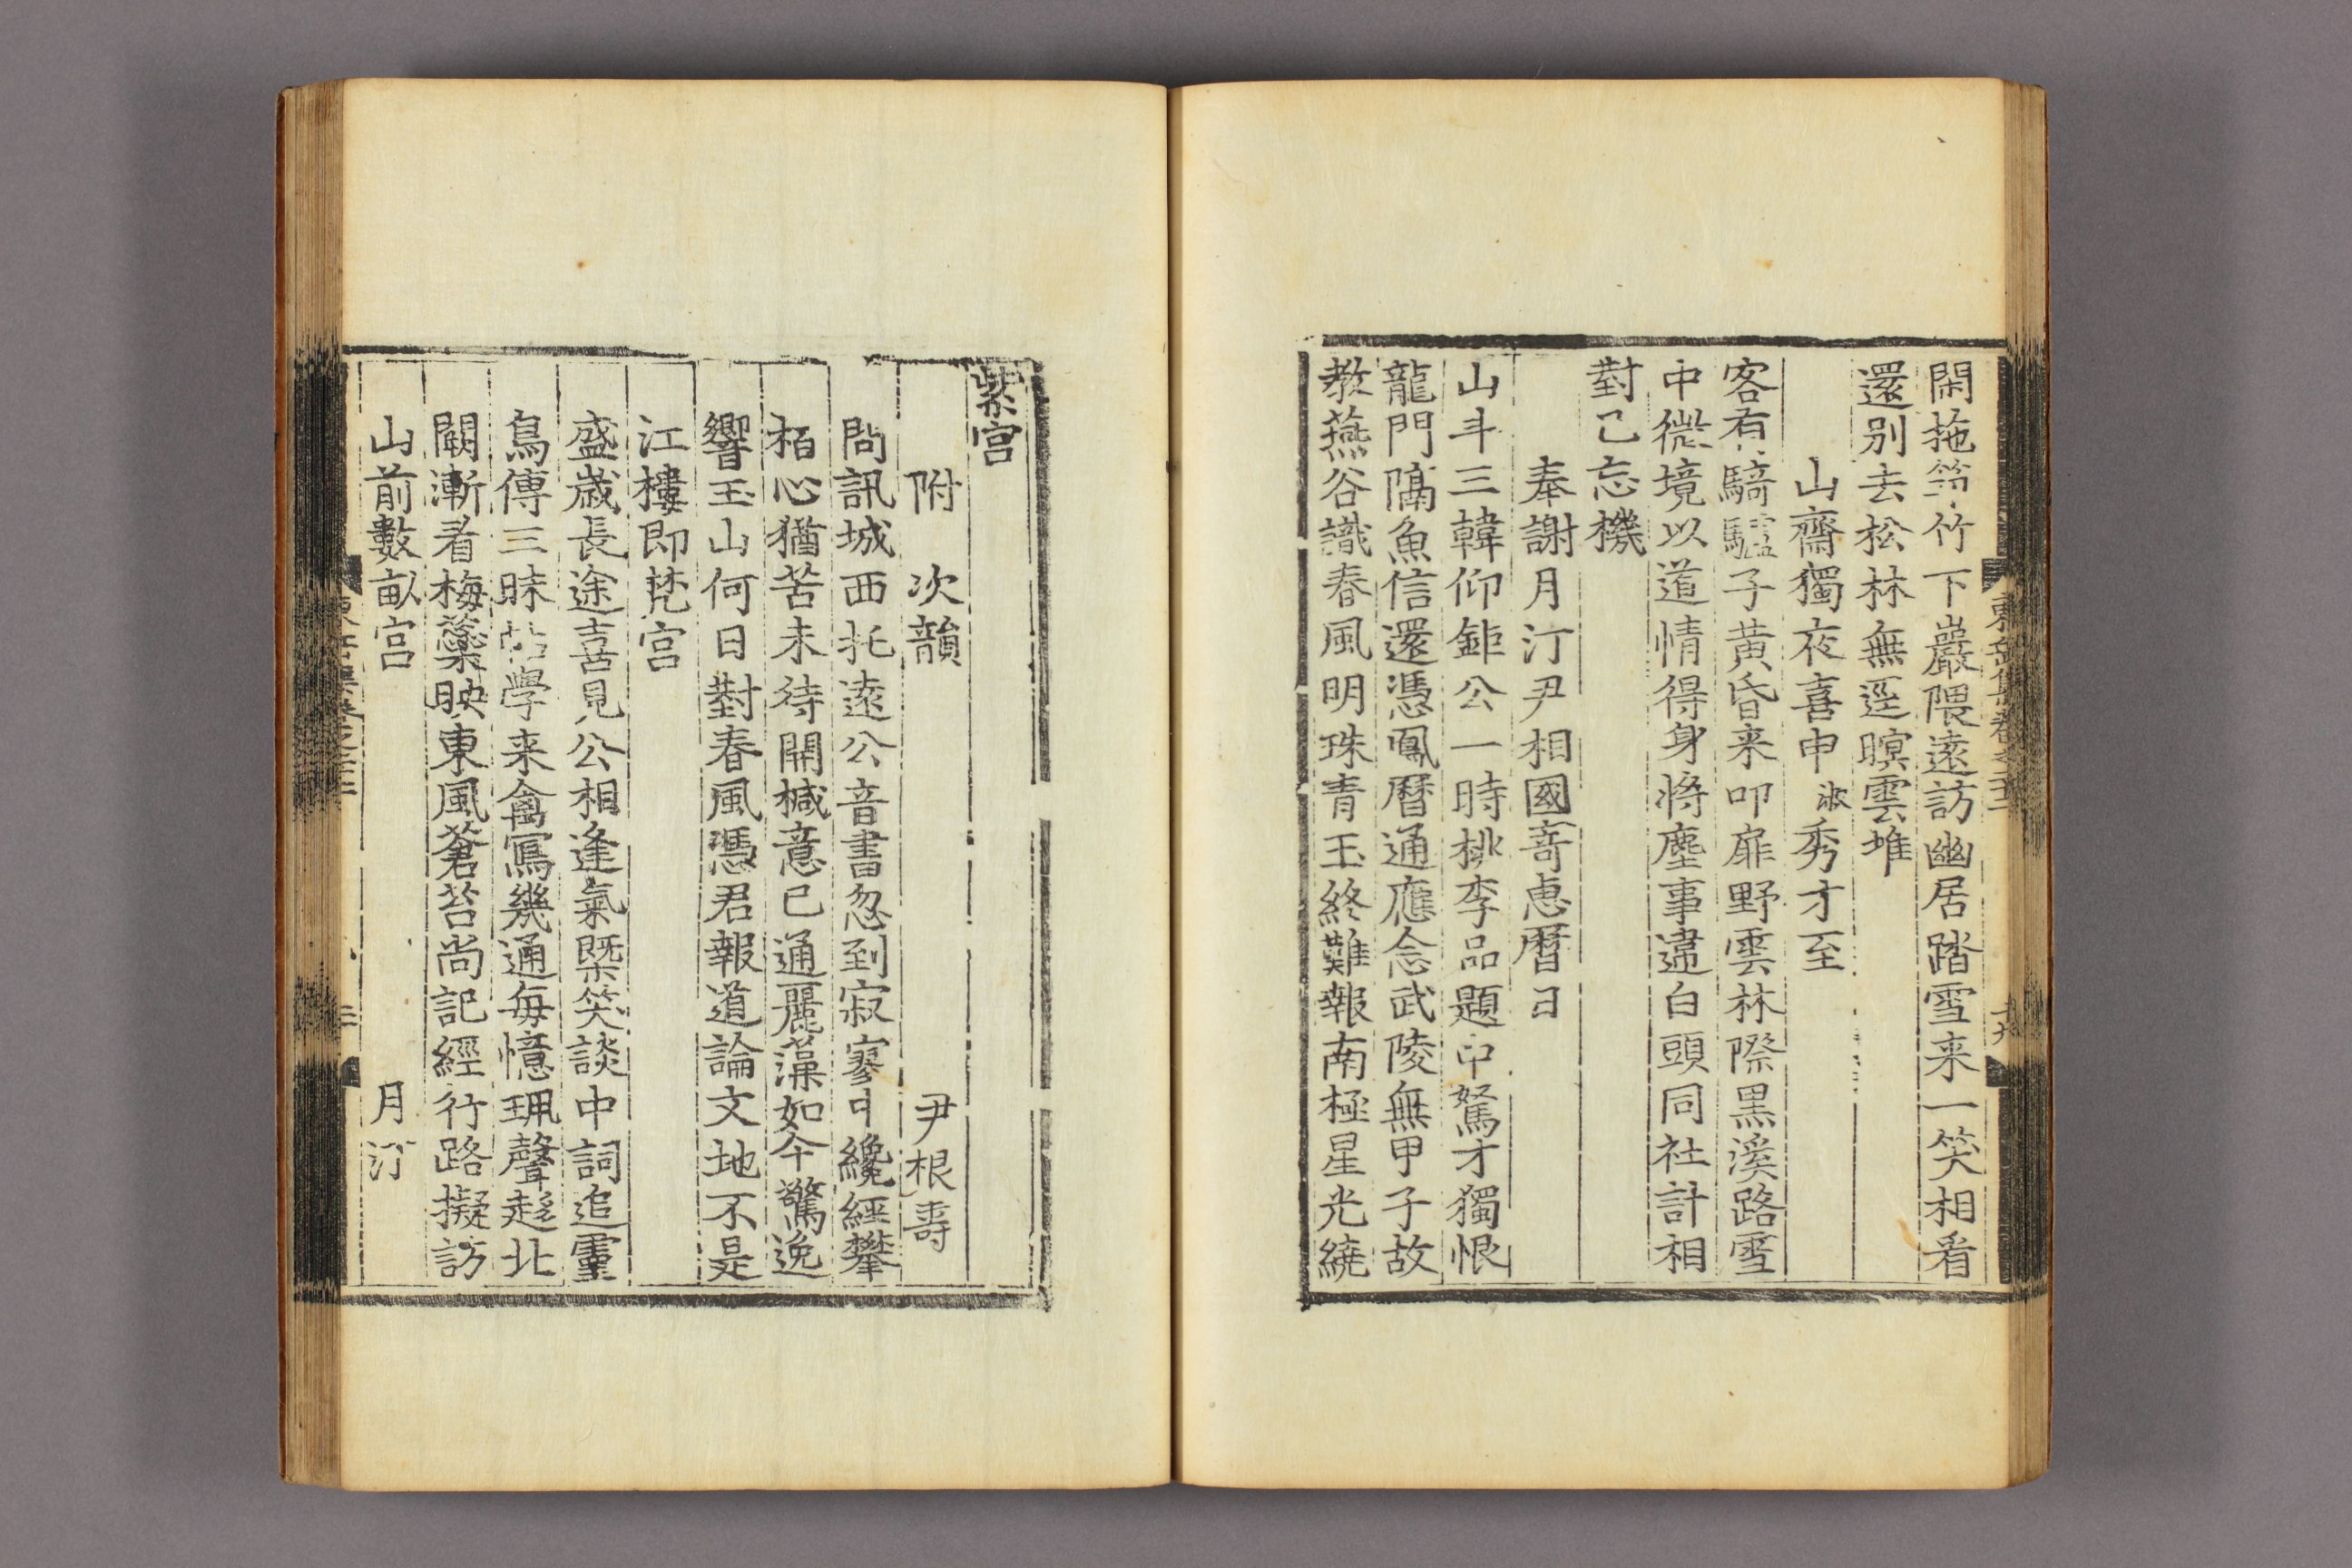 閑拖筇竹下巖隈遠訪幽居踏雪来一笑相看
還別去松林無逕暝雲堆
山齋獨夜喜申淑秀才至
客有騎驢子黃昏来叩扉野雲林際黑溪路雪
中微境以道情得身將塵事違白頭同社計相
對已忘機
奉謝月汀尹相國寄惠曆日
山斗三韓仰鉅公一時桃李品題中駑才獨恨
龍門隔魚信還憑鳳曆通應念武陵無甲子故
教燕谷識春風明珠青玉終難報南極星光繞
紫宮
附 次韻 尹根壽
問訊城西托遠公音書忽到寂寥中纔經攀
栢心猶苦未待開椷意已通麗藻如今驚逸
響玉山何日對春風憑君報道論文地不是
江樓即梵宮
盛歲長途喜見公相逢氣槩笑談中詞追靈
鳥傳三昧學来禽寫幾通每憶珮聲趍北
闕漸看梅藥映東風蒼苔尚記經行路擬訪
山前數畝宮 月汀